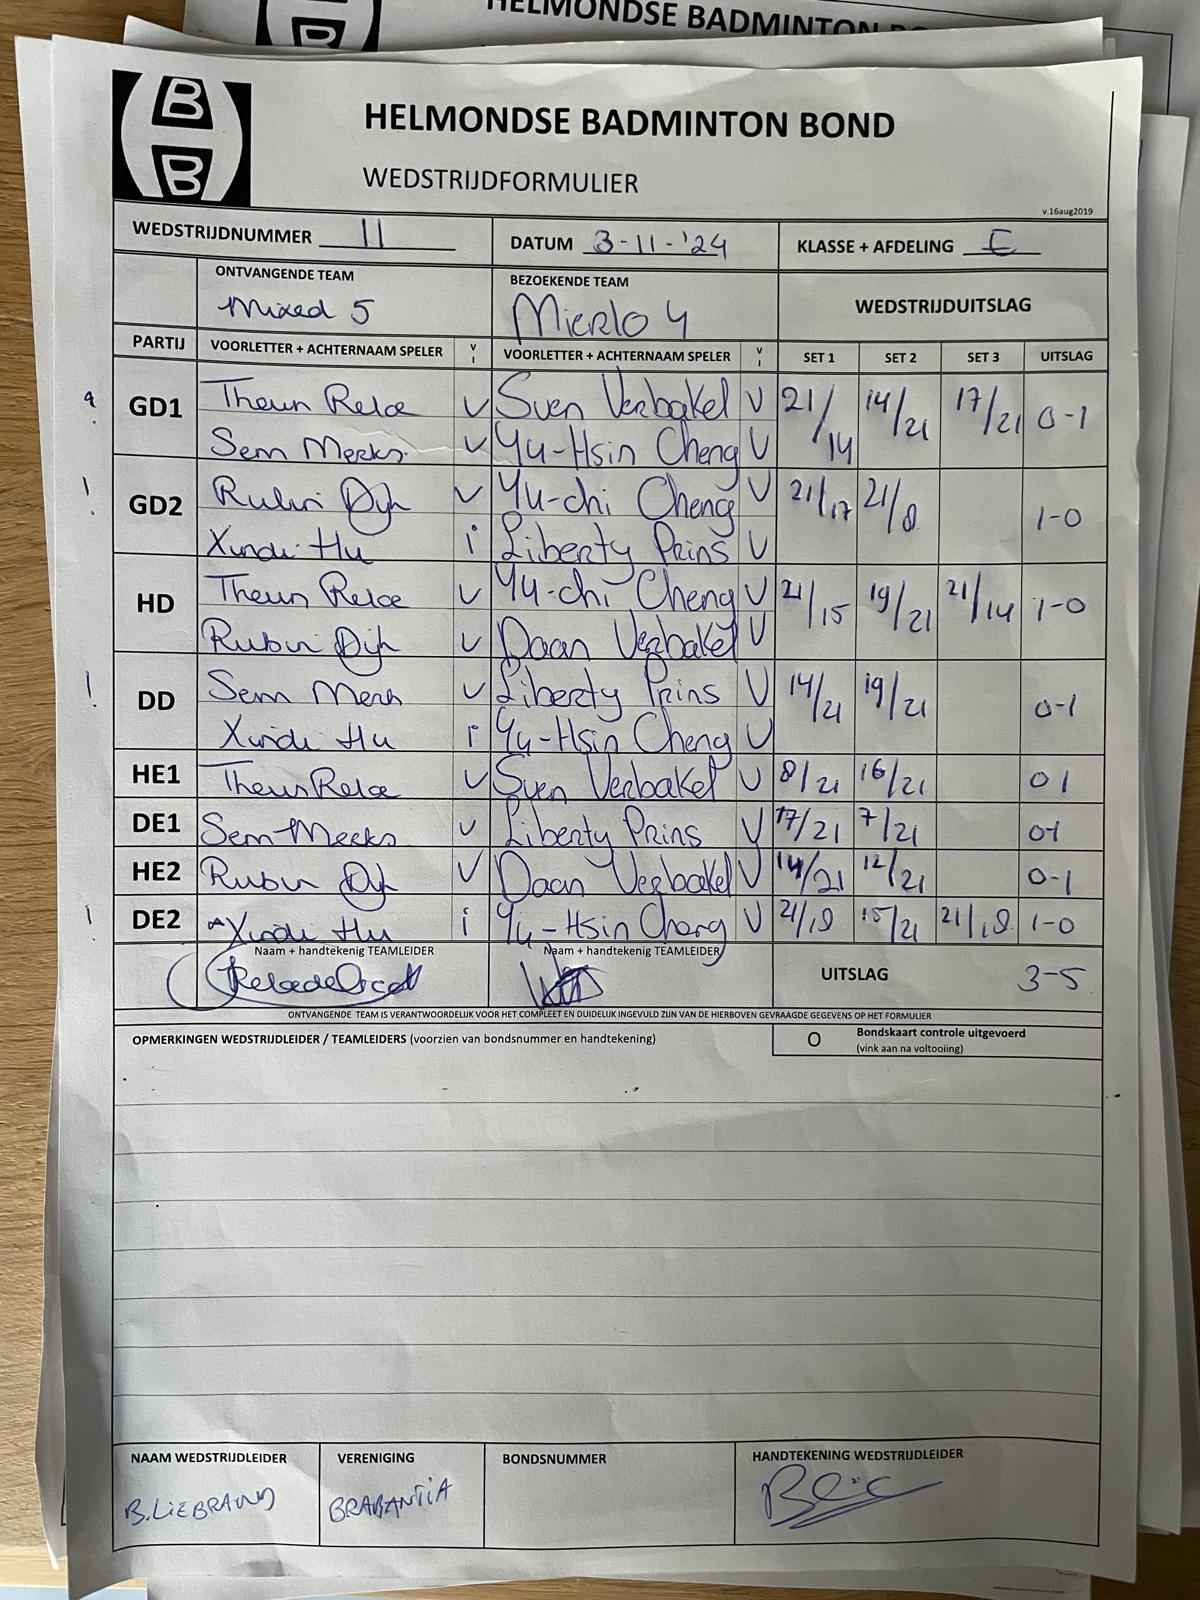 HELMONDSE BADMINTON
B
B
B
HELMONDSE BADMINTON BOND
WEDSTRIJDFORMULIER
v.16aug2019
WEDSTRIJDNUMMER 11 DATUM 3-11-'24 KLASSE + AFDELING E
ONTVANGENDE TEAM BEZOEKENDE TEAM WEDSTRIJDUITSLAG
Mixed 5 Mierlo 4
PARTIJ VOORLETTER + ACHTERNAAM SPELER V I VOORLETTER + ACHTERNAAM SPELER V I SET 1 SET 2 SET 3 UITSLAG
GD1 Theun Reloe V Sven Verbakel V 21/14 14/21 17/21 0-1
Sem Meeks. V Yu-Hsin Cheng V
! GD2 Rubin Dijk V Yu-chi Cheng V 21/17 21/8 1-0
Xindi Hu i Liberty Prins V
HD Theun Reloe V Yu-chi Cheng V 21/15 19/21 21/14 1-0
Rubin Dijk V Daan Verbakel V
! DD Sem Meeks V Liberty Prins V 14/21 19/21 0-1
Xindi Hu i Yu-Hsin Cheng V
HE1 Theun Reloe V Sven Verbakel V 8/21 16/21 0 1
DE1 Sem Meeks V Liberty Prins V 17/21 7/21 0-1
HE2 Rubin Dijk V Daan Verbakel V 14/21 12/21 0-1
! DE2 Xindi Hu i Yu-Hsin Cheng V 21/18 15/21 21/18 1-0
Naam + handtekenig TEAMLEIDER Naam + handtekenig TEAMLEIDER UITSLAG 3-5
ONTVANGENDE TEAM IS VERANTWOORDELIJK VOOR HET COMPLEET EN DUIDELIJK INGEVULD ZIJN VAN DE HIERBOVEN GEVRAAGDE GEGEVENS OP HET FORMULIER
OPMERKINGEN WEDSTRIJDLEIDER / TEAMLEIDERS (voorzien van bondsnummer en handtekening) O Bondskaart controle uitgevoerd
(vink aan na voltooiing)
NAAM WEDSTRIJDLEIDER VERENIGING BONDSNUMMER HANDTEKENING WEDSTRIJDLEIDER
B. LIEBRAND BRABANTIA